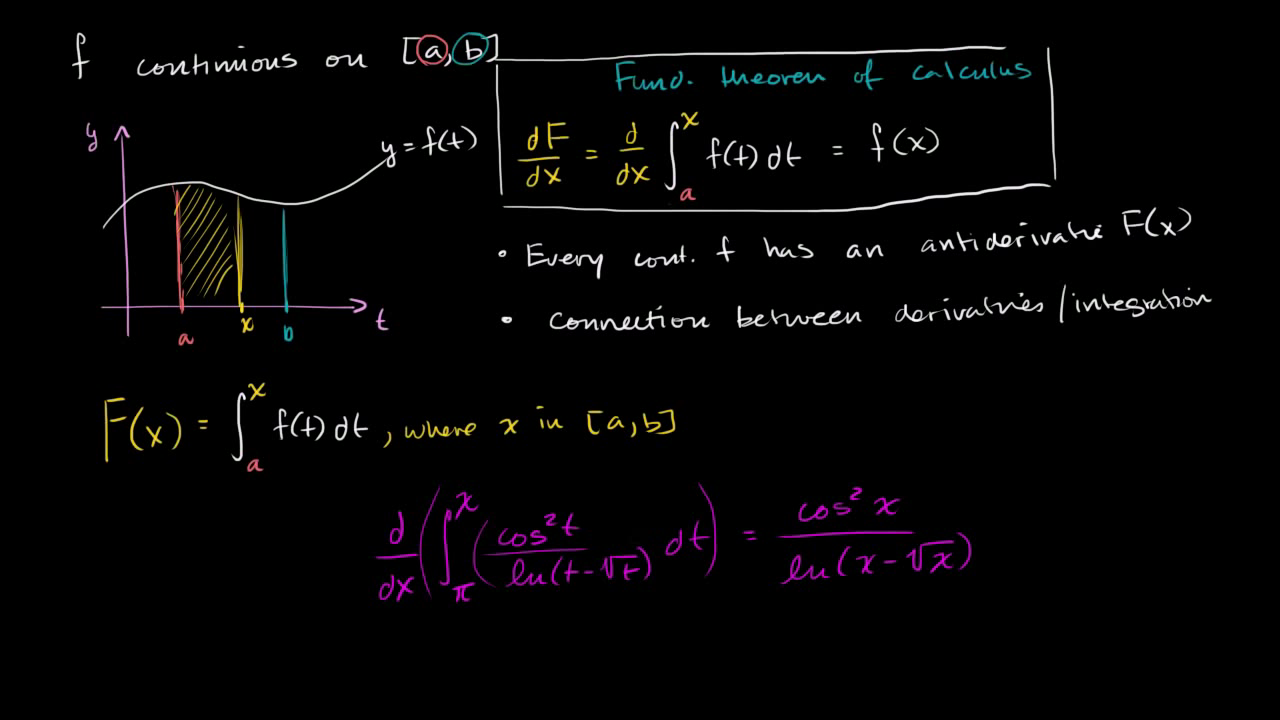 f continuous on [a, b]
Fund. theorem of calculus
dF/dx = d/dx ∫_a^x f(t) dt = f(x)
y
y = f(t)
a x b
t
• Every cont. f has an antiderivative F(x)
• connection between derivatives/integration
F(x) = ∫_a^x f(t) dt, where x in [a,b]
d/dx (∫_π^x (cos²t / ln(t-√t)) dt) = cos² x / ln(x-√x)